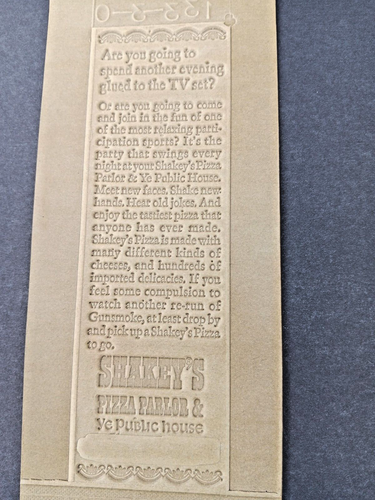 Are you going to
spend another evening
glued to the TV set?
Or are you going to come
and join in the fun of one
of the most relaxing parti-
cipation sports? It's the
party that swings every
night at your Shakey's Pizza
Parlor & Ye Public House.
Meet new faces. Shake new
hands. Hear old jokes. And
enjoy the tastiest pizza that
anyone has ever made.
Shakey's Pizza is made with
many different kinds of
cheeses, and hundreds of
imported delicacies. If you
feel some compulsion to
watch another re-run of
Gunsmoke, at least drop by
and pick up a Shakey's Pizza
to go.
SHAKEY'S
PIZZA PARLOR &
Ye Public house